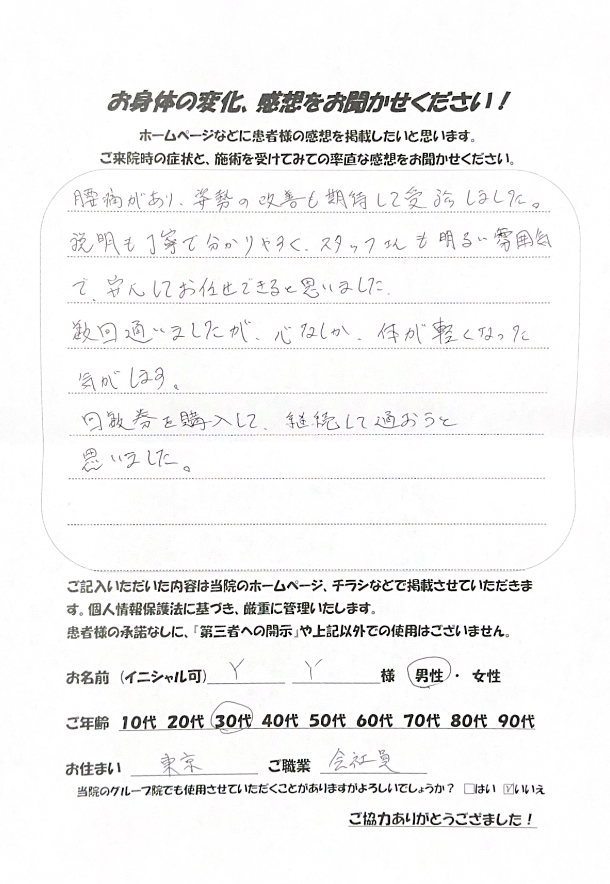 お身体の変化、感想をお聞かせください！
ホームページなどに患者様の感想を掲載したいと思います。
ご来院時の症状と、施術を受けてみての率直な感想をお聞かせください。
腰痛があり、姿勢の改善も期待して受診しました。
説明も丁寧で分かりやすく、スタッフさんも明るい雰囲気
で、安心してお任せできると思いました。
数回通いましたが、心なしか、体が軽くなった
気がします。
回数券を購入して、継続して通おうと
思いました。
ご記入いただいた内容は当院のホームページ、チラシなどで掲載させていただきま
す。個人情報保護法に基づき、厳重に管理いたします。
患者様の承諾なしに、「第三者への開示」や上記以外での使用はございません。
お名前（イニシャル可） Y Y 様 男性・女性
ご年齢 10代 20代 30代 40代 50代 60代 70代 80代 90代
お住まい 東京 ご職業 会社員
当院のグループ院でも使用させていただくことがありますがよろしいでしょうか？ □はい ☑いいえ
ご協力ありがとうござました！